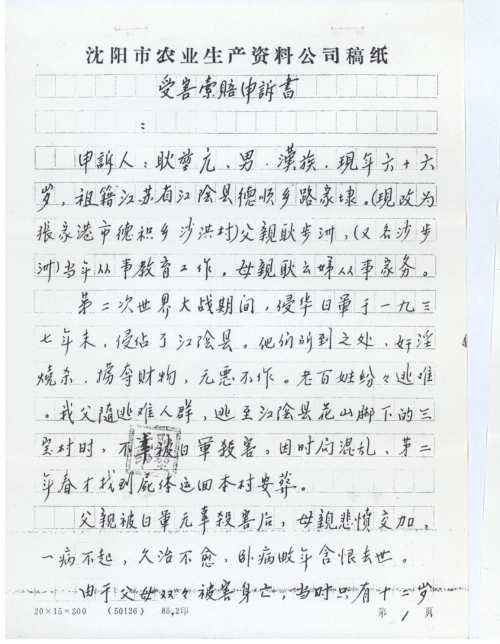 沈阳市农业生产资料公司稿纸
受害索赔申訴書
：
申訴人：耿堃元、男、漢族、現年六十六
岁，祖籍江苏省江陰县德順乡路家埭。(現改为
張家港市德积乡沙洪村)父親耿步洲，(又名沙步
洲)当年从事教育工作。母親耿云娣从事家务。
第二次世界大战期间，侵华日軍于一九三
七年末，侵佔了江陰县。他们所到之处，奸淫
燒杀，掠夺财物，无恶不作。老百姓纷々逃难
。我父随逃难人群，逃至江陰县花山脚下的三
宝村时，不幸被日軍殺害。因时局混乱，第二
年春才找到屍体运回本村安葬。
父親被日軍无辜殺害后，母親悲愤交加，
一病不起，久治不愈，卧病数年含恨去世。
由于父母双々被害身亡，当时只有十二岁
20×15=300 (50126) 85,2印 第 1 頁